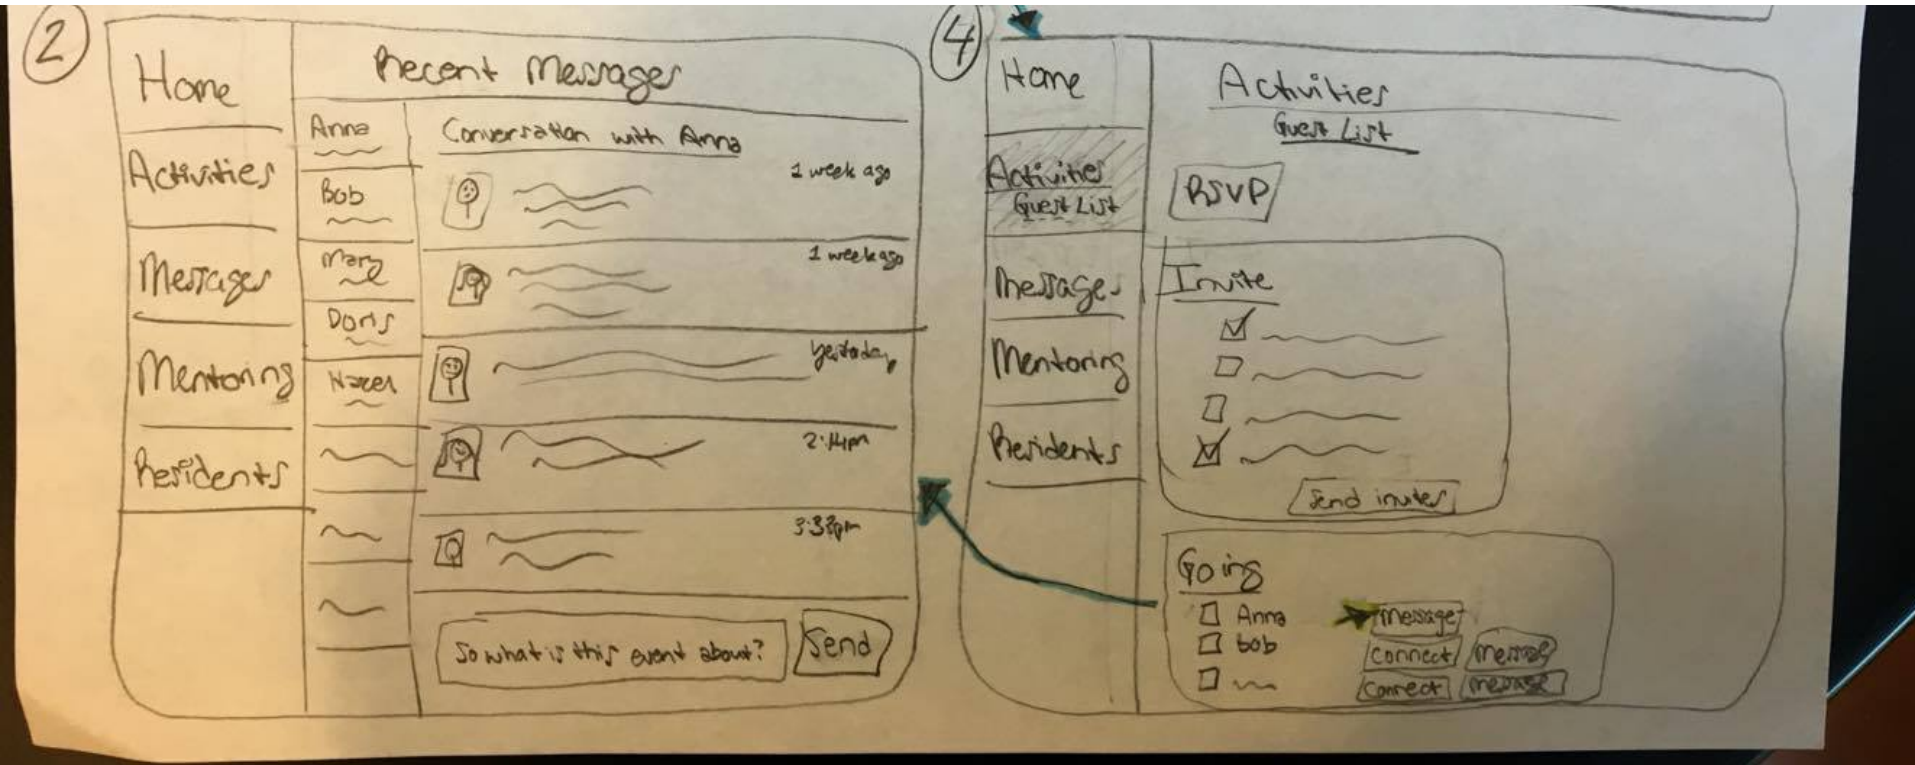 2
Home
Activities
Messages
Mentoring
Residents
Recent Messages
Anna
Bob
Mary
Doris
Conversation with Anna
1 week ago
1 week ago
Yesterday
2:14pm
3:33pm
So what is this event about?
Send
4
Home
Activities
Guest List
Messages
Mentoring
Residents
Activities
Guest List
RSVP
Invite
Send invites
Going
Anna
Message
bob
connect
message
connect
message